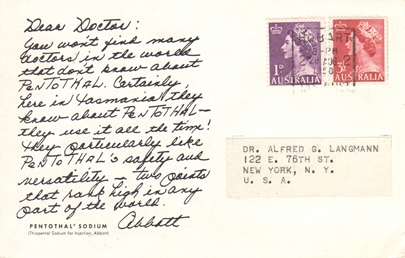 Dear Doctor:
You won't find many
doctors in the world
that don't know about
PENTOTHAL. Certainly,
here in Tasmania they
know about PENTOTHAL—
they use it all the time!
They particularly like
PENTOTHAL'S safety and
versatility — two points
that rank high in any
part of the world.
Abbott
PENTOTHAL® SODIUM
(Thiopental Sodium for Injection, Abbott)
HOBART
-PM
1D
AUSTRALIA
AUSTRALIA
DR. ALFRED G. LANGMANN
122 E. 76TH ST.
NEW YORK, N. Y.
U. S. A.